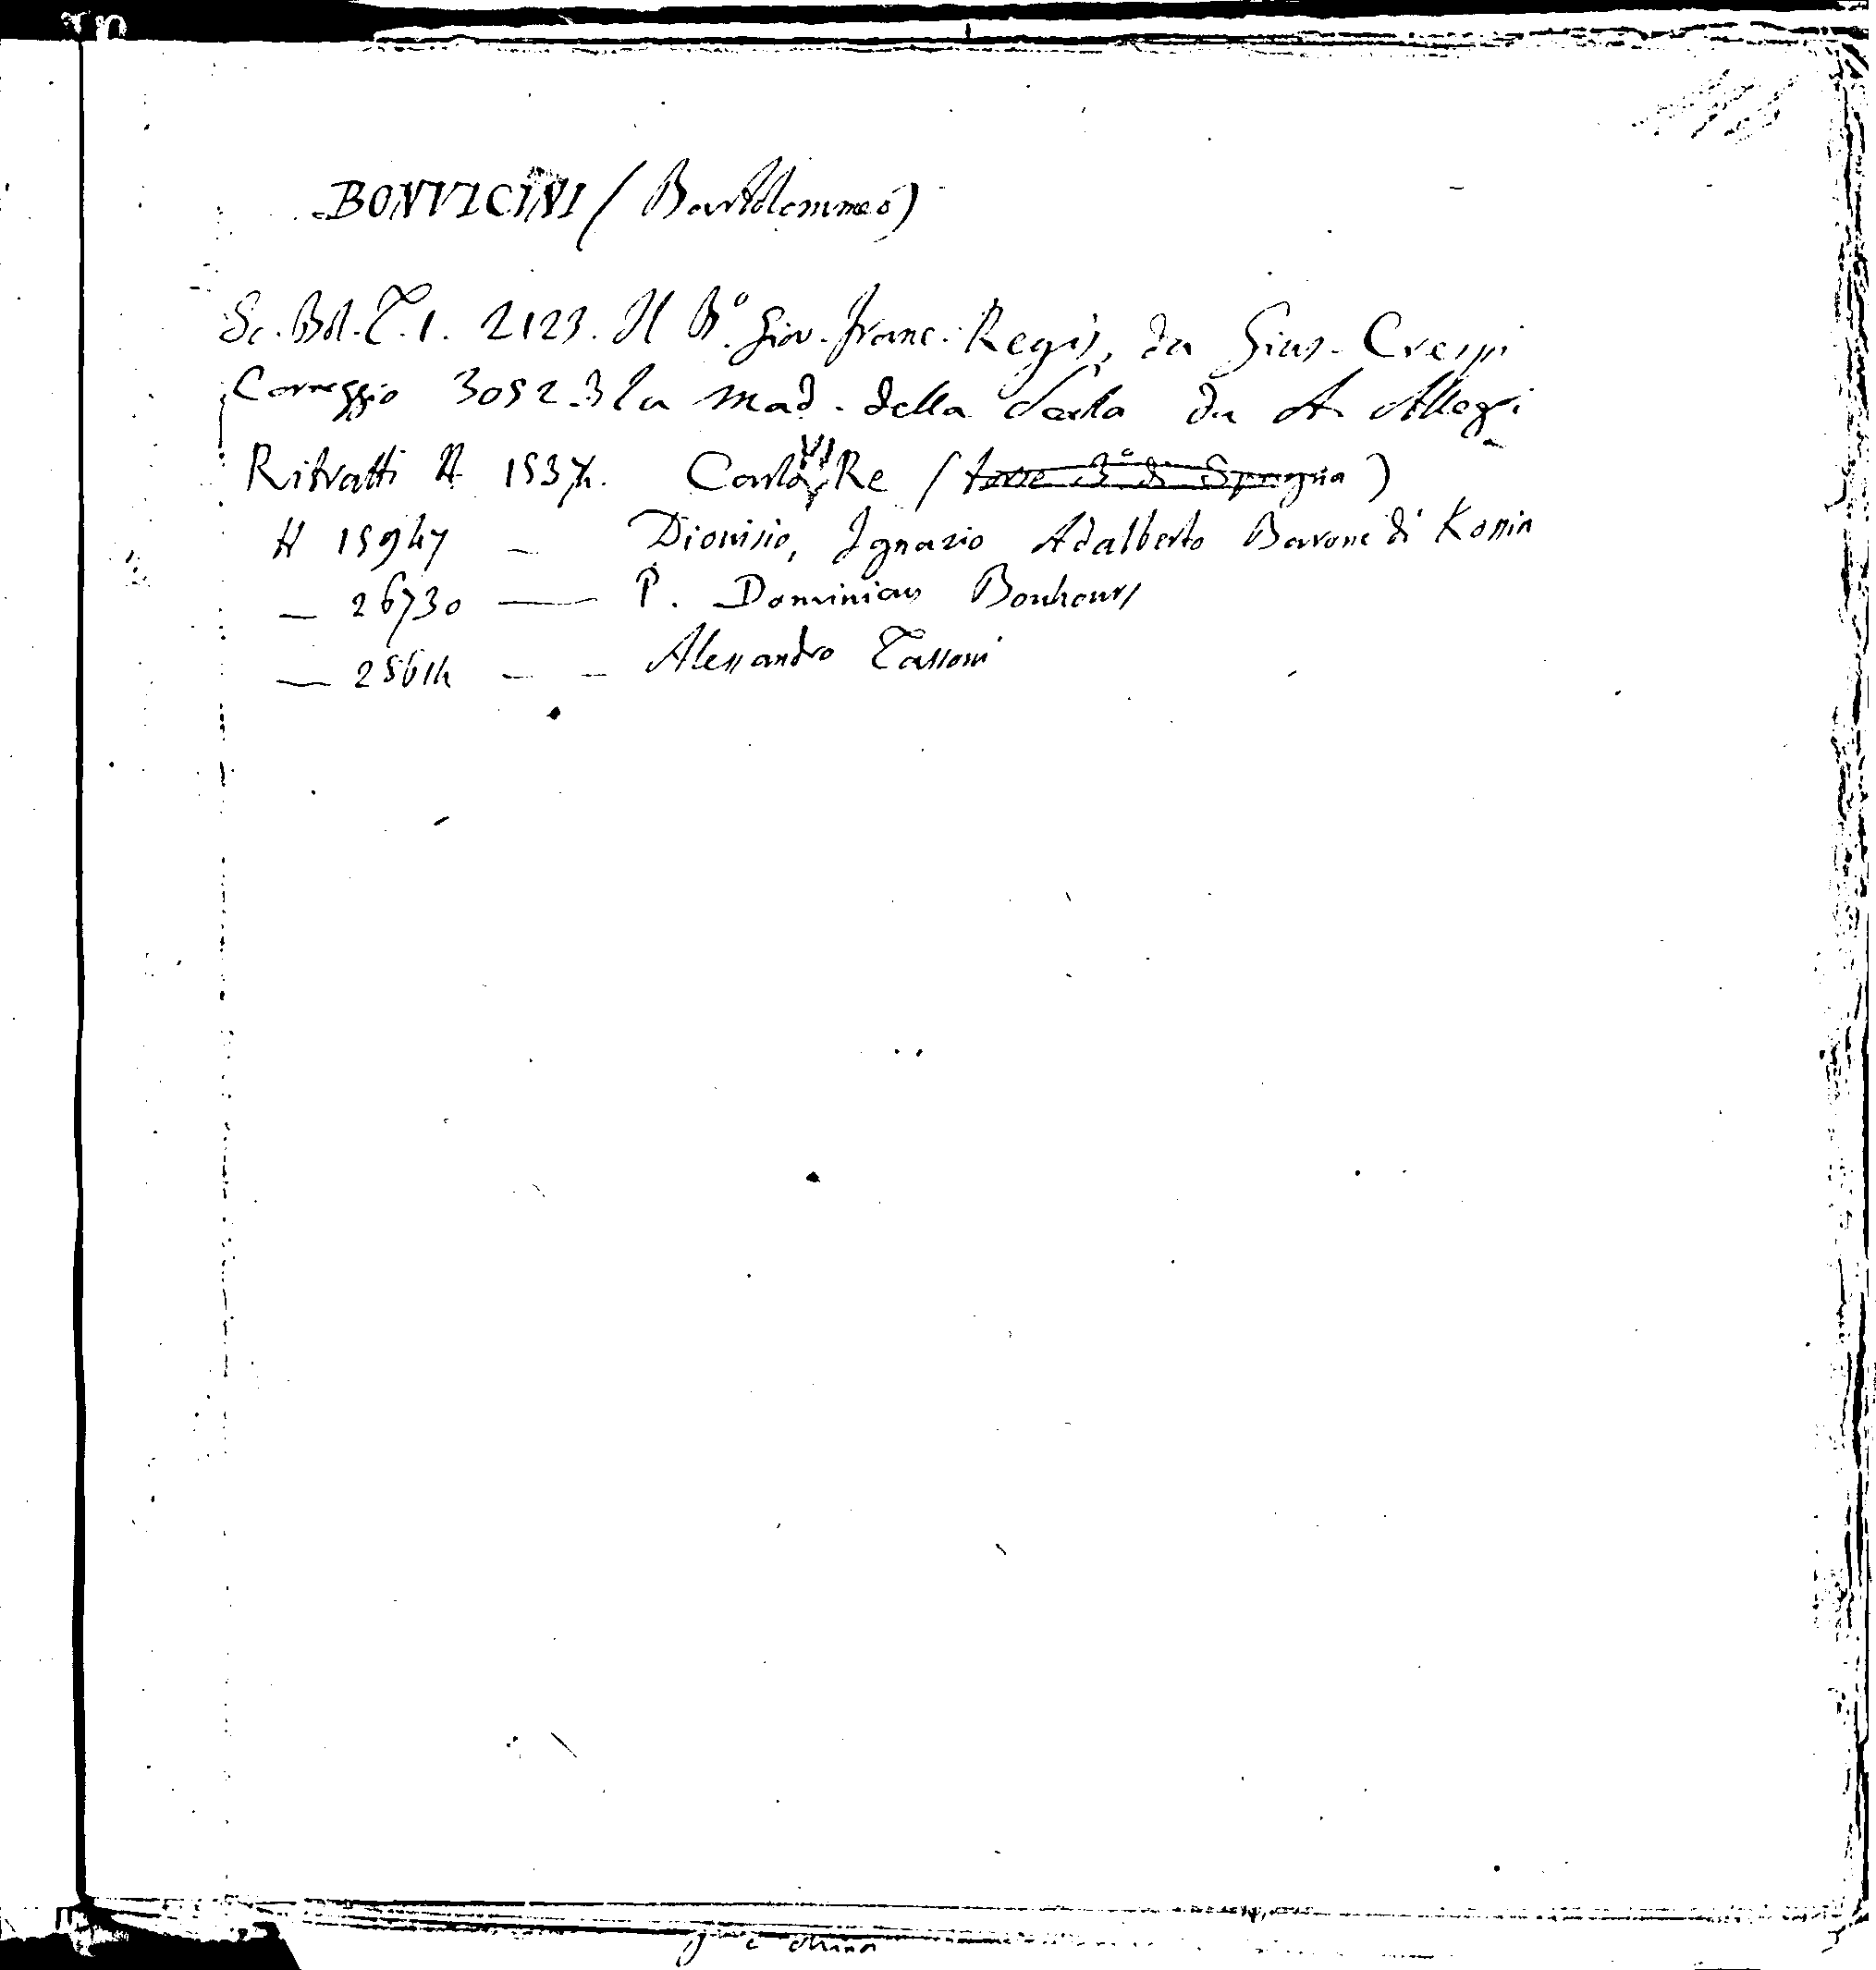 BONVICINI (Bartolommeo)
Sc. Bol. T. 1. 2123. Il B.º Giov. Franc. Regis, da Gius. Crespi
Correggio 3052-3 la Mad. della Scala da A. Allegri
Ritratti A 15374. Carlo VI Re (forse 3º di Spagna)
A 15947 — Dionisio, Ignazio Adalberto Barone di Konin
— 26730 — P. Dominicus Bouhours
— 25614 — — Alessandro Tassoni